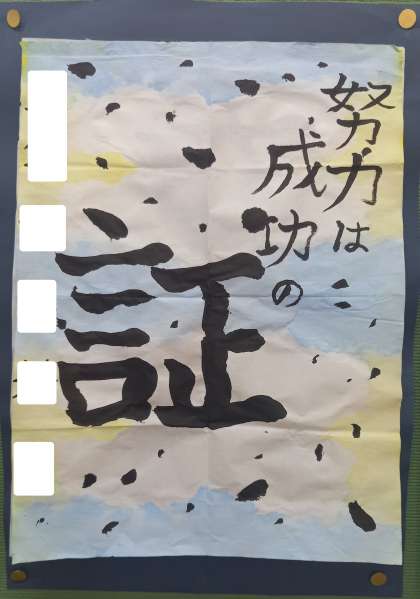 努力は
成功の
証